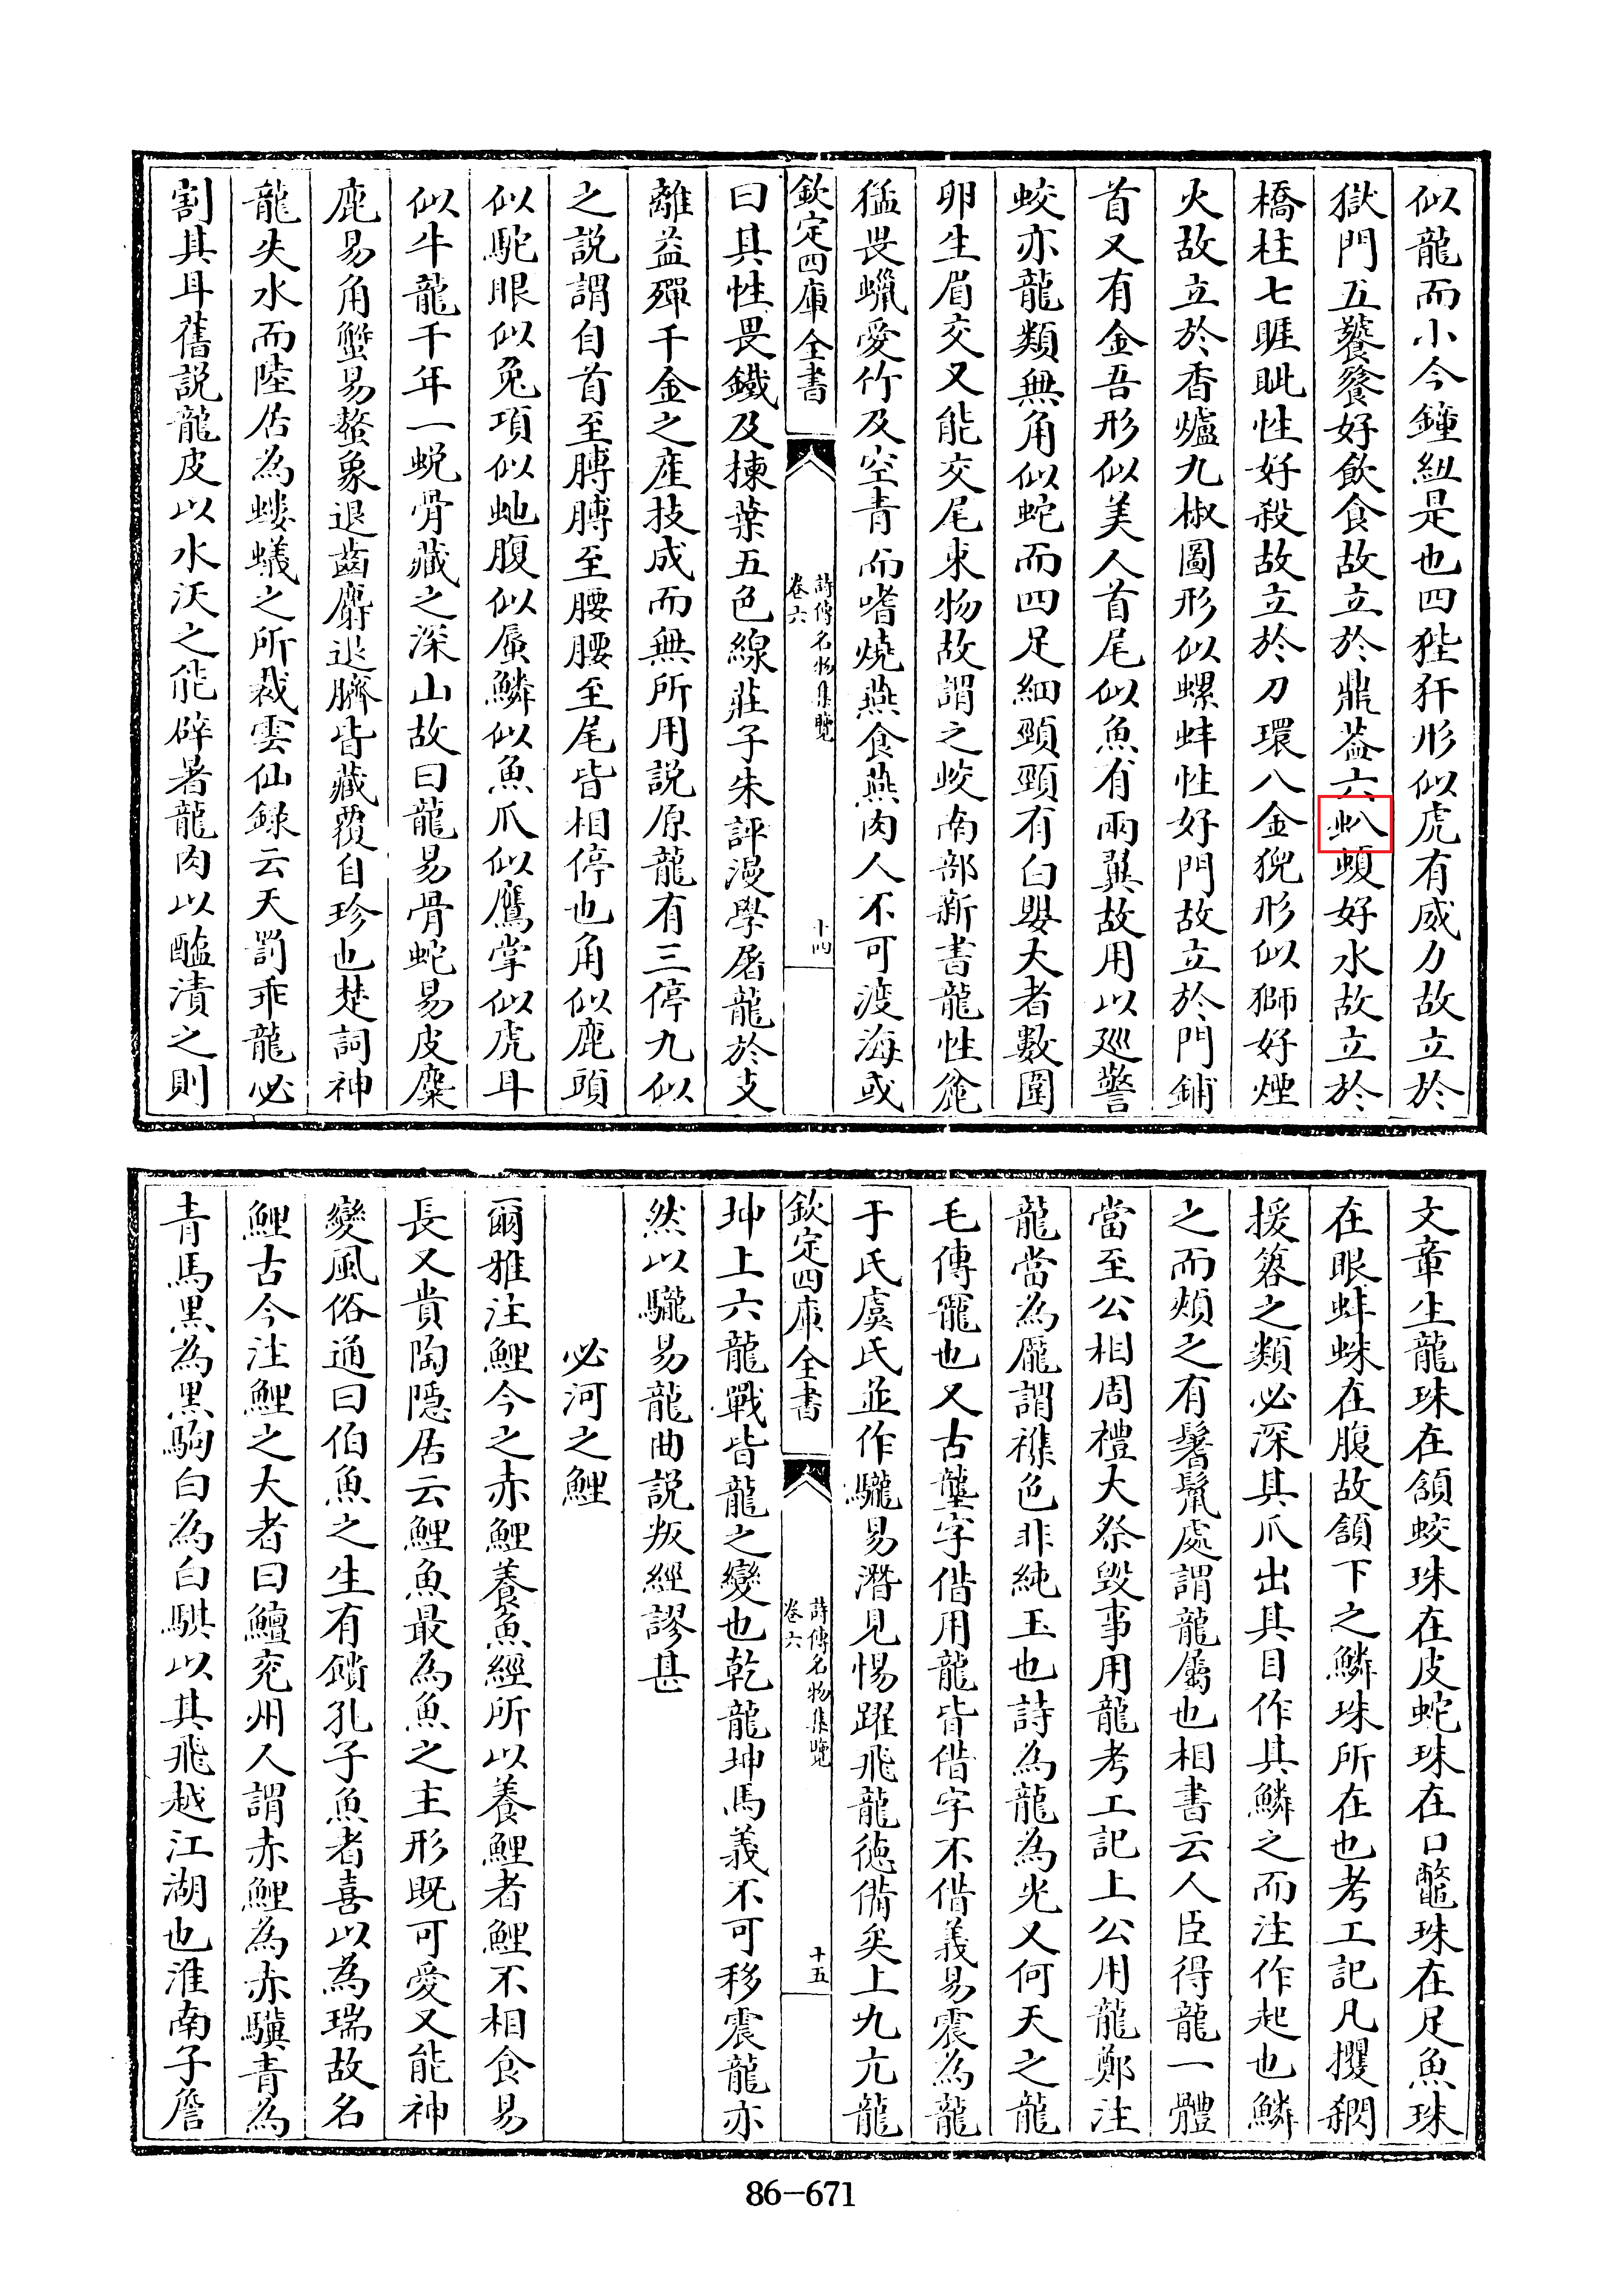 似龍而小今鐘紐是也四狴犴形似虎有威力故立於
獄門五饕餮好飲食故立於鼎葢六𧈢𧏡好水故立於
橋柱七睚眦性好殺故立於刀環八金猊形似獅好煙
火故立於香爐九椒圖形似螺蚌性好門故立於門鋪
首又有金吾形似美人首尾似魚有兩翼故用以廵警
蛟亦龍類無角似蛇而四足細頸頸有白嬰大者數圍
卵生眉交又能交尾束物故謂之蛟南部新書龍性麄
猛畏蠟愛竹及空青而嗜燒燕食燕肉人不可渡海或
欽定四庫全書
詩傳名物集覽
卷六
十四
曰其性畏鐵及楝葉五色線莊子朱評漫學屠龍於支
離益殫千金之産技成而無所用説原龍有三停九似
之説謂自首至膊膊至腰腰至尾皆相停也角似鹿頭
似駝眼似兔項似虵腹似蜃鱗似魚爪似鷹掌似虎耳
似牛龍千年一蜕骨藏之深山故曰龍易骨蛇易皮麋
鹿易角蟹易螯象退齒麝退臍皆藏覆自珍也楚詞神
龍失水而陸居為螻蟻之所裁雲仙録云天罰乖龍必
割其耳舊説龍皮以水沃之能辟暑龍肉以醢漬之則
文章生龍珠在頷蛟珠在皮蛇珠在口鼈珠在足魚珠
在眼蚌蛛在腹故頷下之鱗珠所在也考工記凡攫閷
援簭之類必深其爪出其目作其鱗之而注作起也鱗
之而頰之有鬐鬛處謂龍屬也相書云人臣得龍一體
當至公相周禮大祭毁事用龍考工記上公用龍鄭注
龍當為尨謂襍色非純玉也詩為龍為光又何天之龍
毛傳寵也又古壟字偕用龍皆偕字不偕義易震為龍
于氏虞氏並作驡易潛見惕躍飛龍徳備矣上九亢龍
欽定四庫全書
詩傳名物集覽
卷六
十五
坤上六龍戰皆龍之變也乾龍坤馬義不可移震龍亦
然以驡易龍曲説叛經謬甚
必河之鯉
爾雅注鯉今之赤鯉養魚經所以養鯉者鯉不相食易
長又貴陶隠居云鯉魚最為魚之主形既可愛又能神
變風俗通曰伯魚之生有饋孔子魚者喜以為瑞故名
鯉古今注鯉之大者曰鱣兖州人謂赤鯉為赤驥青為
青馬黒為黒駒白為白騏以其飛越江湖也淮南子詹
86-671